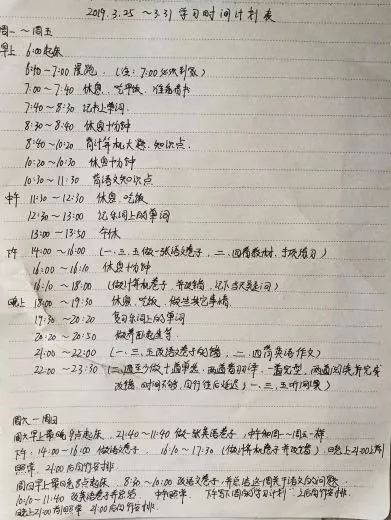 2019.3.25 ~3.31 学习时间计划表
周一~周五
早上 6:00起床
6:40-7:00 晨跑 (注: 7:00 必须到家)
7:00~7:40 休息, 吃早饭, 准备看书
7:40~8:30 记书上单词
8:30~8:40 休息十分钟
8:40~10:20 背计算机大题, 知识点
10:20~10:30 休息十分钟
10:30~11:30 背语文知识点
中午 11:30~12:30 休息, 吃饭
12:30~13:00 记单词上的单词
13:00~13:50 午休
下午 14:00~16:00 (一、三、五做一张语文卷子, 二、四看教材, 手项练习)
16:00~16:10 休息十分钟
16:10~18:00 (做计算机卷子, 并改错, 记下当天笔记)
晚上 18:00~19:30 休息, 吃饭, 做些其它事情
19:30~20:20 复习单词上的单词
20:20~20:50 做卷
21:00~22:00 (一、三、五改语文卷子的错, 二、四背英语作文)
22:00~23:30 (二、四至少做十道单选, 两道看翻译, 一套完型, 两道阅读并完成
改错, 时间不够, 自行往后延迟) 一、三、五听网课
周六-周日
周六早上8点起床 9:40-11:40 做一张英语卷子, 中午和周一~周五一样
下午: 14:00-16:00 做语文卷子, 16:10~17:30 (做计算机卷子并改错) 晚上21:00以前
照常, 21:00后自行安排
周日早上8点起床 8:30~10:00 改语文卷子, 并总结这周关于语文的问题
10:10~11:40 改英语卷子并总结 中午照常, 下午写下周的学习计划 之后自行安排
晚上21:00前照常 21:00后自行安排